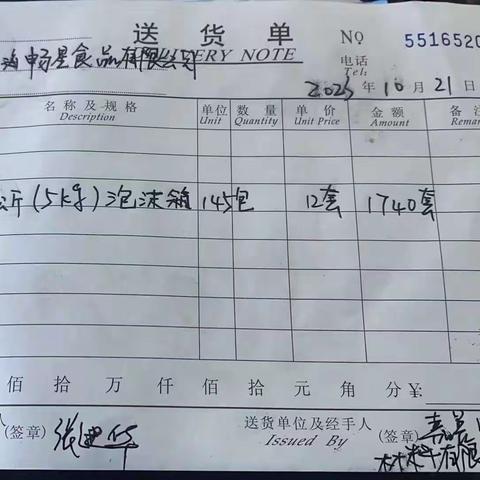 送货单
DELIVERY NOTE
№ 5516520
电话
Tel:
食品有限公司
2025年10月21日
名称及规格 单位 数量 单价 金额 备
Description Unit Quantity Unit Price Amount Remar
斤(5kg)泡沫箱 145包 12套 1740套
佰 拾 万 仟 佰 拾 元 角 分 ¥:
(签章) 张 华
送货单位及经手人 (签章)
Issued By
有限